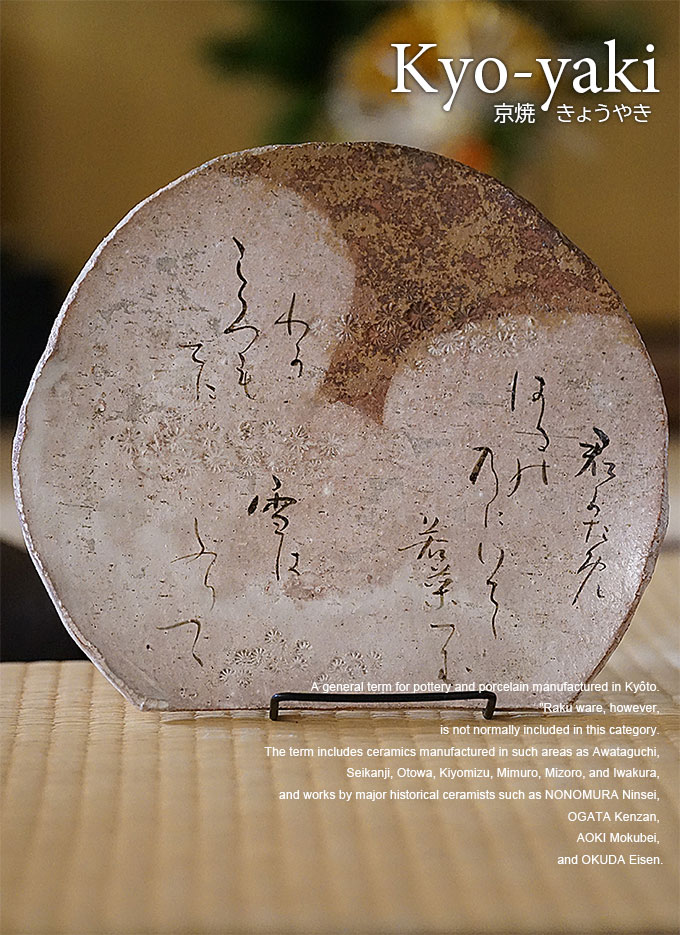 Kyo-yaki
京焼 きょうやき
君かため
はるの
乃にいてゝ
若菜つむ
わか
ころも
てに
雪は
ふりつゝ
A general term for pottery and porcelain manufactured in Kyôto.
"Raku ware, however,
is not normally included in this category.
The term includes ceramics manufactured in such areas as Awataguchi,
Seikanji, Otowa, Kiyomizu, Mimuro, Mizoro, and Iwakura,
and works by major historical ceramists such as NONOMURA Ninsei,
OGATA Kenzan,
AOKI Mokubei,
and OKUDA Eisen.